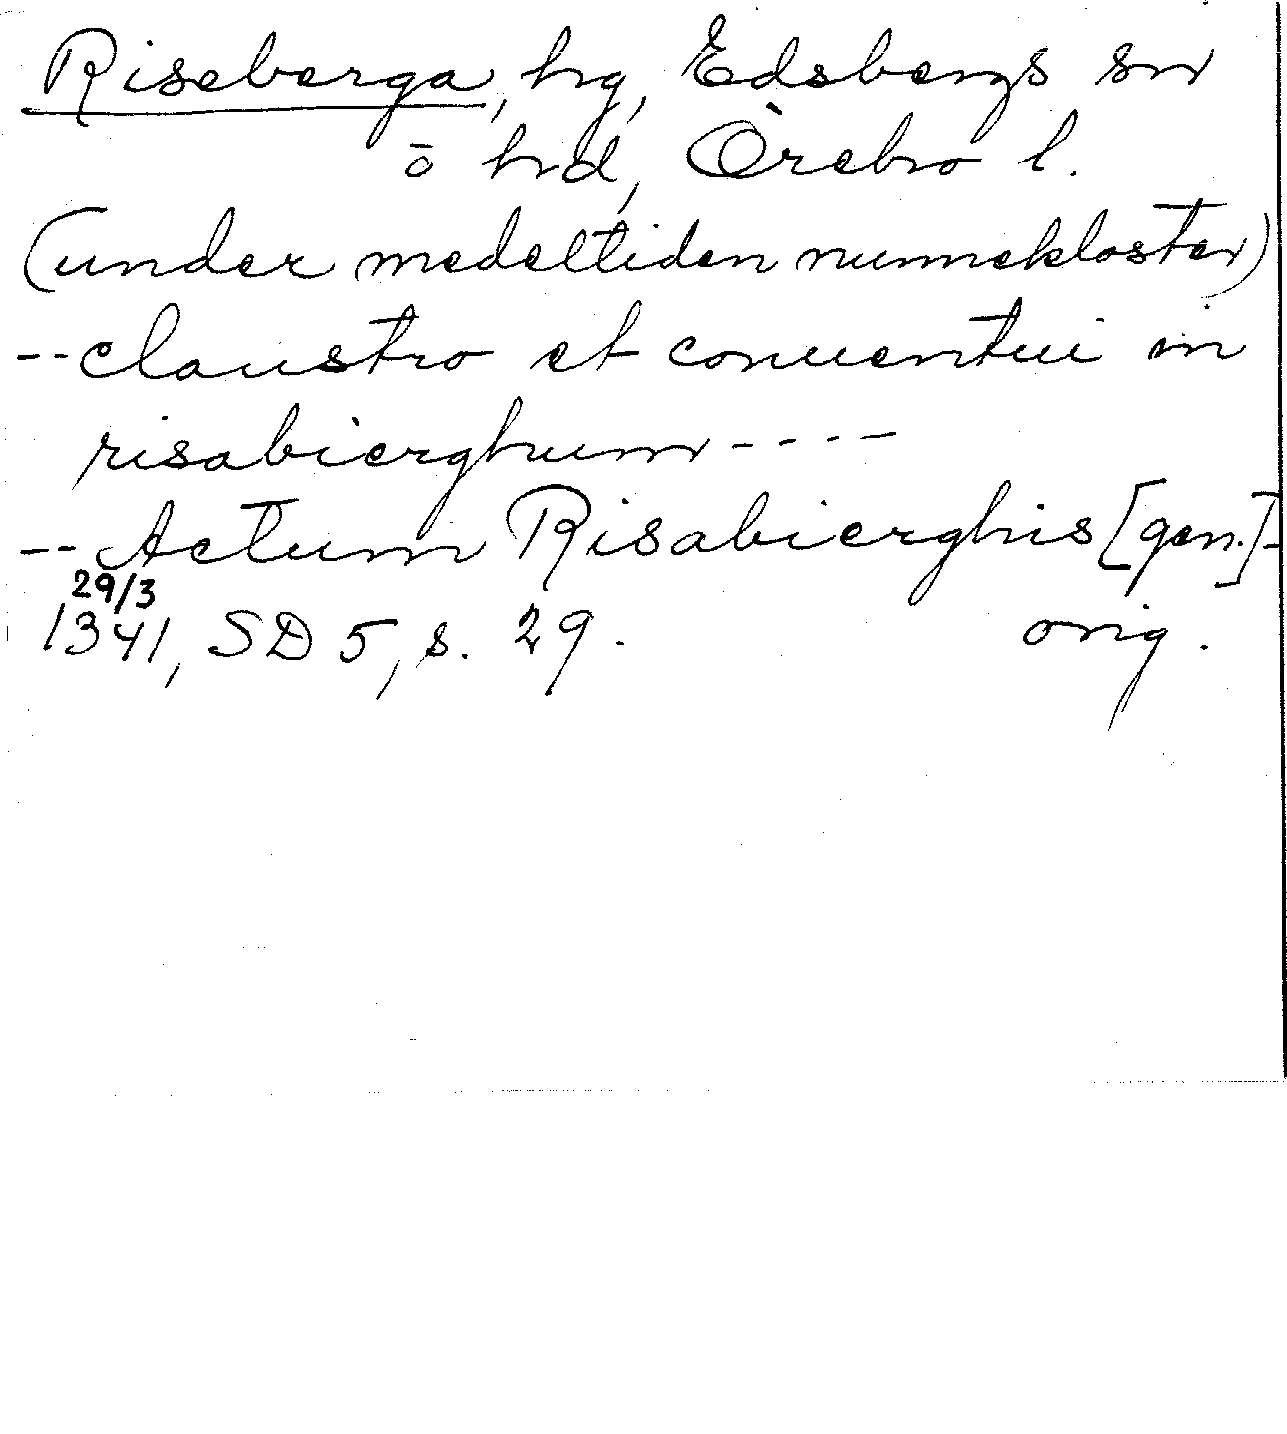 Riseberga, hg, Edsbergs sn
o hd, Örebro l.
(under medeltiden nunnekloster)
--claustro et conuentui in
risabierghum----
--Actum Risabierghis [gen.]-
29/3
1341, SD 5, s. 29. orig.